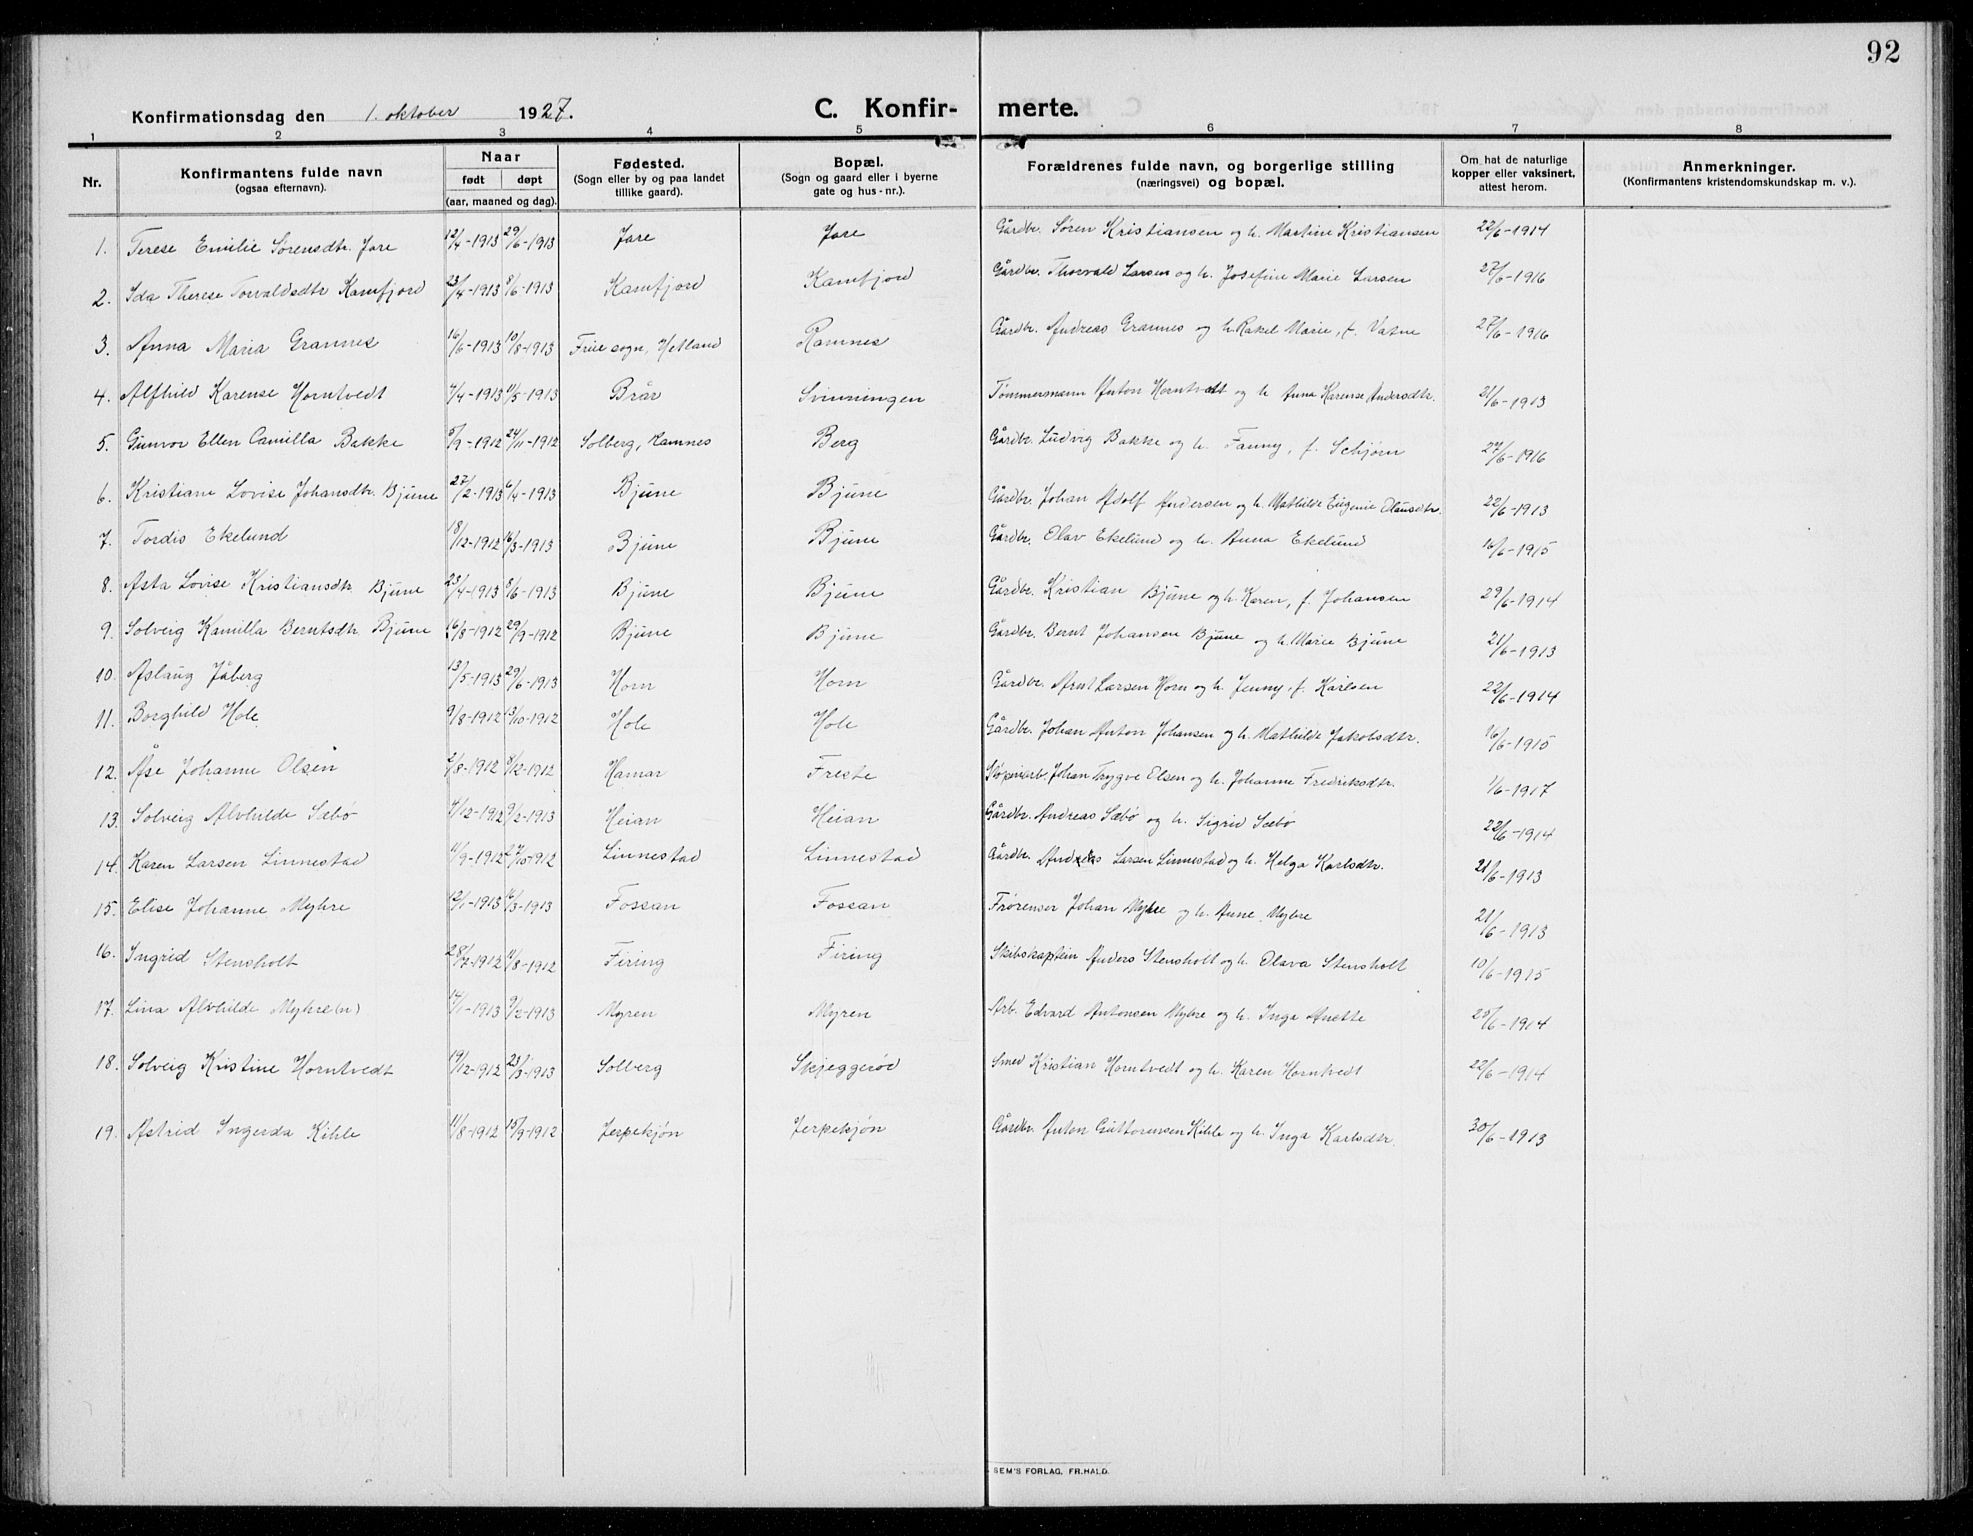 92
Konfirmationsdag den 1. oktober 1927. C. Konfir- merte.
1 2 3 4 5 6 7 8
Nr. Konfirmantens fulde navn (ogsaa efternavn). Naar født døpt (aar, maaned og dag). Fødested. (Sogn eller by og paa landet tillike gaard). Bopæl. (Sogn og gaard eller i byerne gate og hus-nr.). Forældrenes fulde navn, og borgerlige stilling (næringsvei) og bopæl. Om hat de naturlige kopper eller vaksinert, attest herom. Anmerkninger. (Konfirmantens kristendomskundskap m. v.).
1. Terese Emilie Sørensdtr. Jare 12/4-1913 29/6-1913 Jare Jare Gårdbr. Søren Kristiansen og h. Martine Kristiansen 22/6-1914
2. Ida Therese Torvaldsdtr. Kamfjord 23/4-1913 8/6-1913 Kamfjord Kamfjord Gårdbr. Thorvald Larsen og h. Josefine Marie Larsen 27/6-1916
3. Anna Maria Grannes 16/6-1913 10/8-1913 Frue sogn, Hetland Ramnes Gårdbr. Andreas Grannes og h. Rakel Marie, f. Vatne 27/6-1916
4. Alfhild Karense Horntvedt 7/4-1913 11/5-1913 Brår Svinningen Tømmermann Anton Horntvedt og h. Anna Karense Andersdtr. 21/6-1913
5. Gunvor Ellen Camilla Bakke 5/9-1912 24/11-1912 Solberg, Ramnes Berg Gårdbr. Ludvig Bakke og h. Fanny, f. Schjørn 27/6-1916
6. Kristiane Lovise Johansdtr. Bjune 27/2-1913 6/4-1913 Bjune Bjune Gårdbr. Johan Adolf Andersen og h. Mathilde Eugenie Olausdtr. 22/6-1913
7. Tordis Ekelund 18/12-1912 16/3-1913 Bjune Bjune Gårdbr. Olav Ekelund og h. Anna Ekelund 16/6-1915
8. Asta Lovise Kristiansdtr. Bjune 23/4-1913 8/6-1913 Bjune Bjune Gårdbr. Kristian Bjune og h. Karen, f. Johansen 29/6-1914
9. Solveig Kamilla Berntsdtr. Bjune 16/8-1912 29/9-1912 Bjune Bjune Gårdbr. Bernt Johansen Bjune og h. Marie Bjune 21/6-1913
10. Aslaug Jåberg 13/5-1913 29/6-1913 Horn Horn Gårdbr. Arnt Larsen Horn og h. Jenny, f. Karlsen 22/6-1914
11. Borghild Hole 9/8-1912 13/10-1912 Hole Hole Gårdbr. Johan Anton Johansen og h. Mathilde Jakobsdtr. 16/6-1915
12. Åse Johanne Olsen 2/8-1912 8/12-1912 Hamar Freste Johan Trygve Olsen og h. Johanne Fredriksdtr. 1/6-1917
13. Solveig Alvhilde Sæbø 4/12-1912 9/2-1913 Heian Heian Gårdbr. Andreas Sæbø og h. Sigrid Sæbø 22/6-1914
14. Karen Larsen Linnestad 11/9-1912 27/10-1912 Linnestad Linnestad Gårdbr. Larsen Linnestad og h. Helga Karlsdtr. 21/6-1913
15. Elise Johanne Myhre 12/1-1913 16/3-1913 Fossan Fossan Johan Myhre og h. Anne Myhre 21/6-1913
16. Ingrid Stensholt 28/7-1912 11/8-1912 Firing Firing Skibskaptein Anders Stensholt og h. Olava Stensholt 10/6-1915
17. Lina Alvhilde Myhre(n) 14/1-1913 9/2-1913 Myren Myren Arb. Edvard Antonsen Myhre og h. Inga Anette 25/6-1914
18. Solveig Kristine Horntvedt 19/12-1912 23/3-1913 Solberg Skjeggerød Smed Kristian Horntvedt og h. Karen Horntvedt 22/6-1914
19. Astrid Ingerda Kihle 11/8-1912 15/9-1912 Jerpekjøn Jerpekjøn Gårdbr. Anton Guttormsen Kihle og h. Inga Karlsdtr. 30/6-1913
SEM'S FORLAG, FR.HALD.